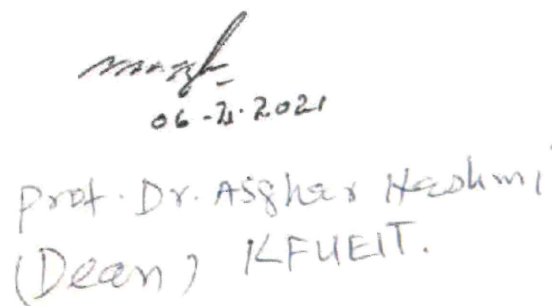 06-2-2021
Prof. Dr. Asghar Hashmi
(Dean) KFUEIT.